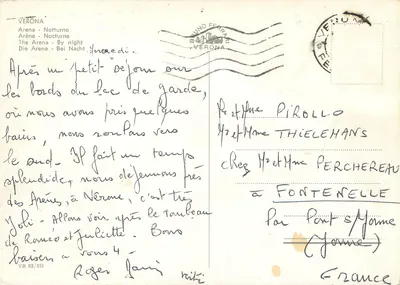 VERONA
Arena - Notturno
Arène - Nocturne
The Arena - By night
Die Arena - Bei Nacht
Mercredi -
Après un petit séjour sur
les bords du Lac de Garde,
où nous avons pris quelques
bains, nous roulons vers
le sud. Il fait un temps
splendide, nous déjeunons près
des Arènes, à Vérone, c'est très
joli - Allons voir après le tombeau
de Roméo et Juliette. Bons
baisers à vous 4 -
Roger
VR 82/III
VERONA
VERONA
Mr et Mme PIROLLO
Mr et Mme THIELEMANS
Chez Mr et Mme PERCHEREAU
à FONTENELLE
par Pont s/Yonne
(Yonne)
France